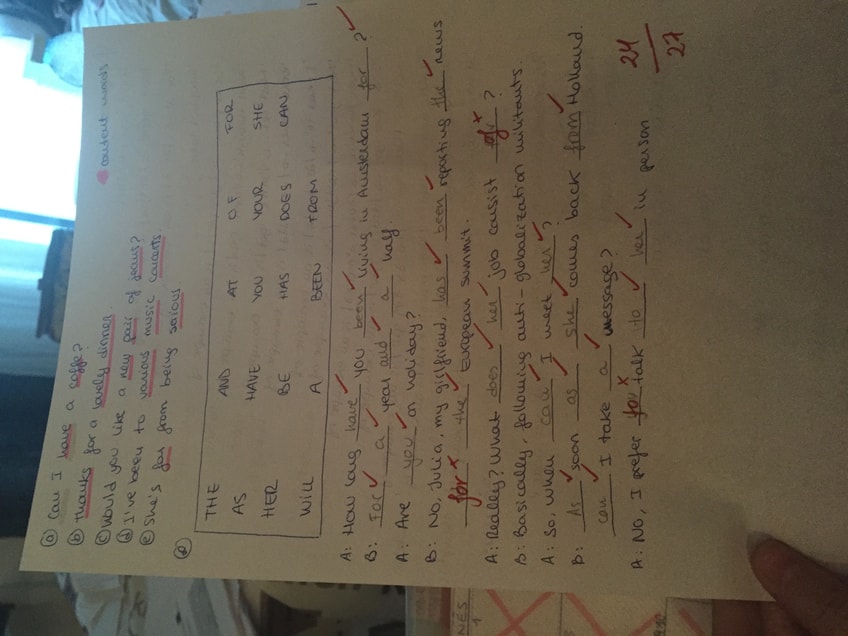 content words
ⓐ Can I have a coffe?
ⓑ thanks for a lovely dinner.
ⓒ Would you like a new pair of jeans?
ⓓ I've been to various music concerts
ⓔ She's far from being serious
②
THE AND AT OF FOR
AS HAVE YOU YOUR SHE
HER BE HAS DOES CAN
WILL A BEEN FROM
A: How long have you been living in Amsterdam for?
B: For a year and a half.
A: Are you on holiday?
B: No, Julia, my girlfriend, has been reporting the news
for the European summit.
A: Really? What does her job consist of?
B: Basically, following anti-globalization militants.
A: So, when can I meet her?
B: As soon as she comes back from Holland.
can I take a message?
A: No, I prefer talk to her in person.
24
27
NÉS